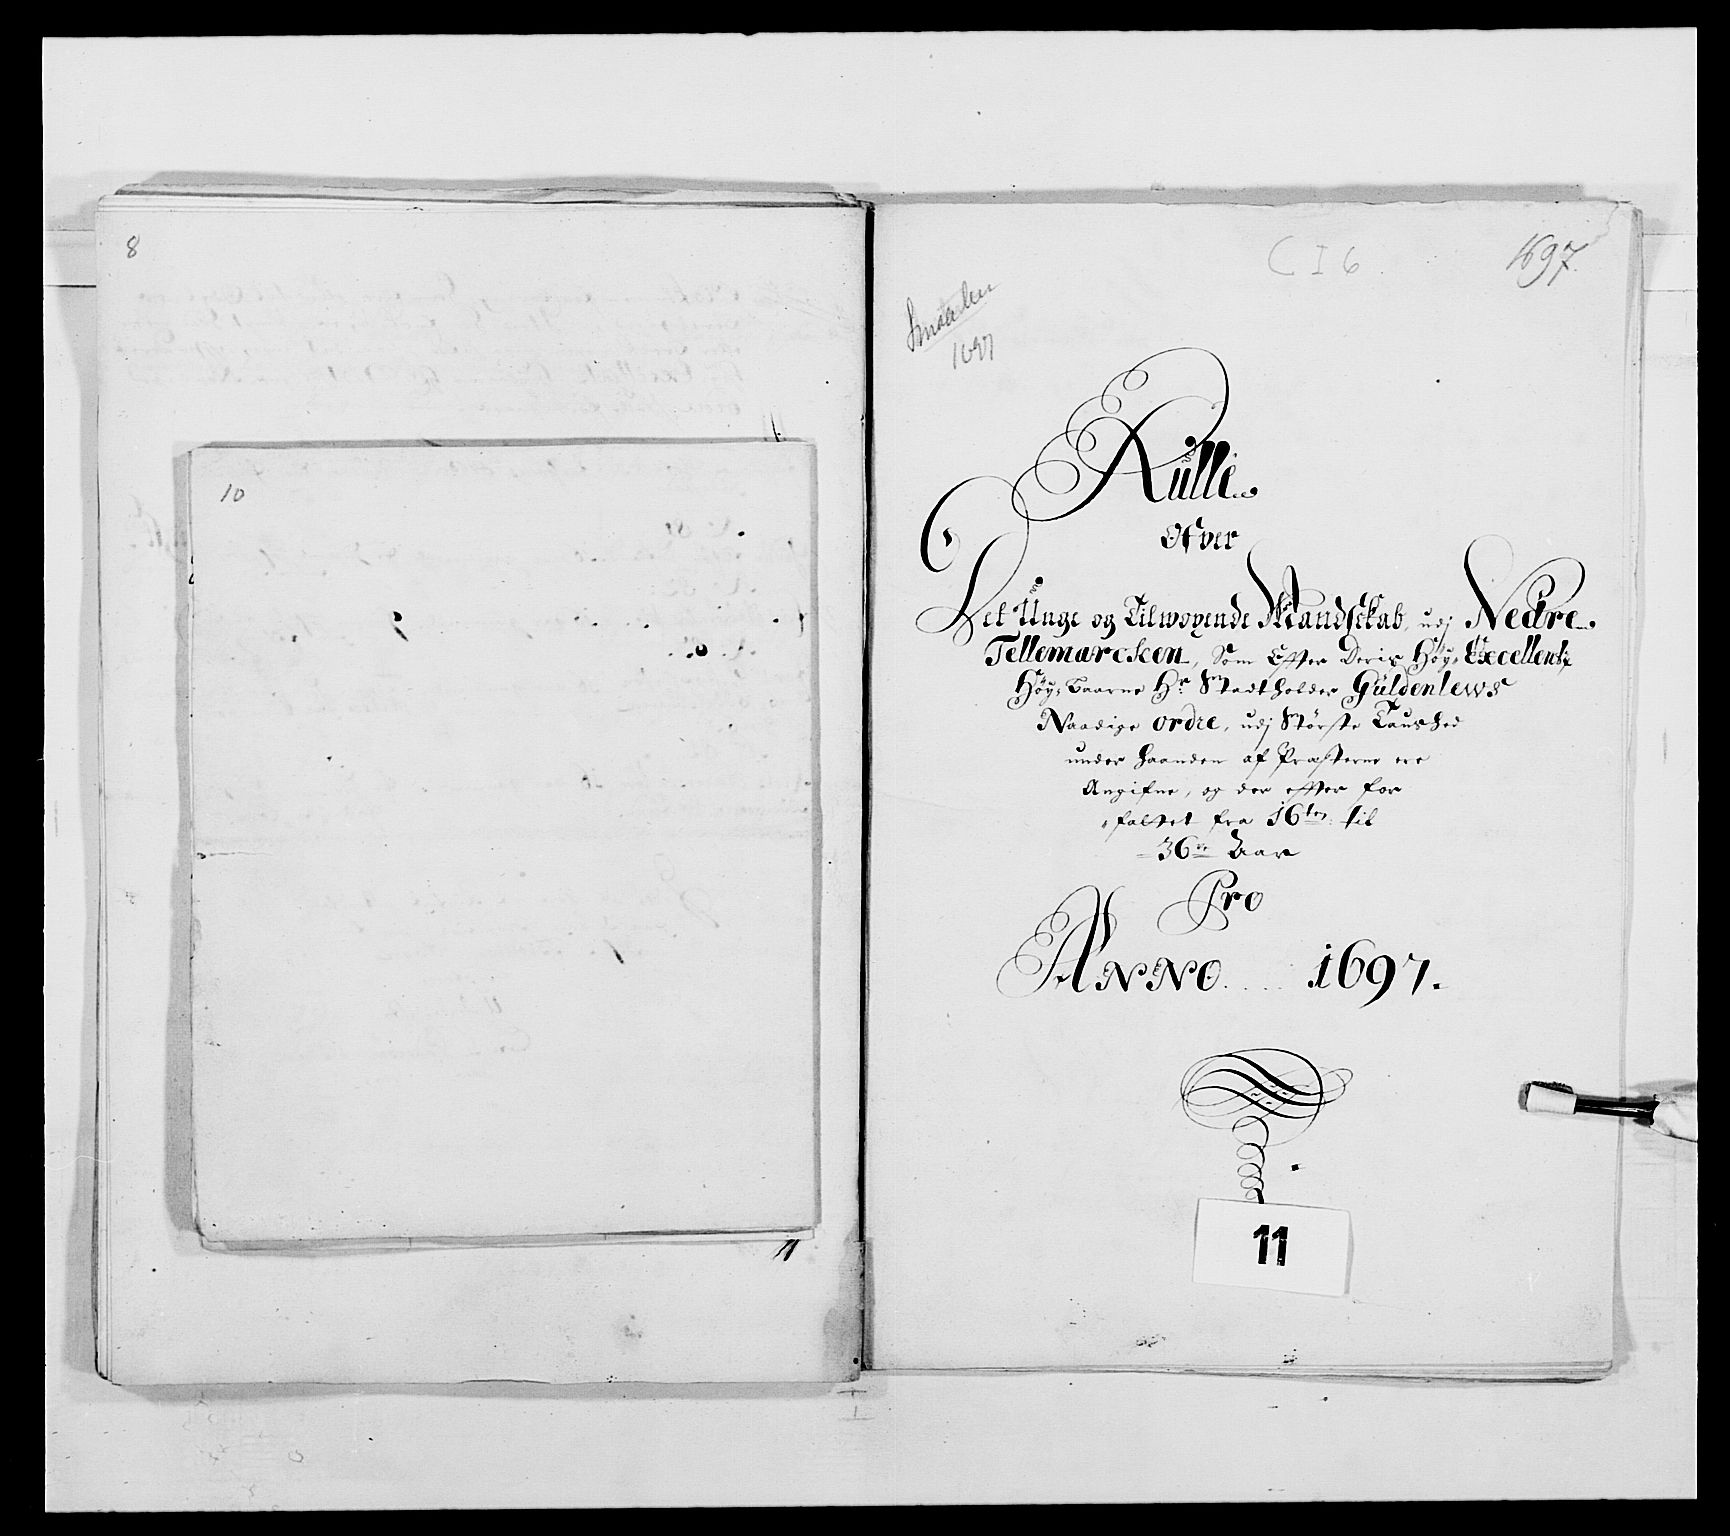 8
10
C I 6.
1697.
1697
Rulle
Ofver
Det Unge og Tilwoxende Mandskab, udj Nedre
Tellemarcken, Som Effter Deris Høy Excellentz
Høy Baarne Hr Stadtholder Güldenlews
Naadige ordre, udj Største Taushed
under haanden af Præsterne ere
Angifne, og der effter for
fattet fra 16ten til
36te Aar
Pro
ANNO . . . . 1697.
11
11